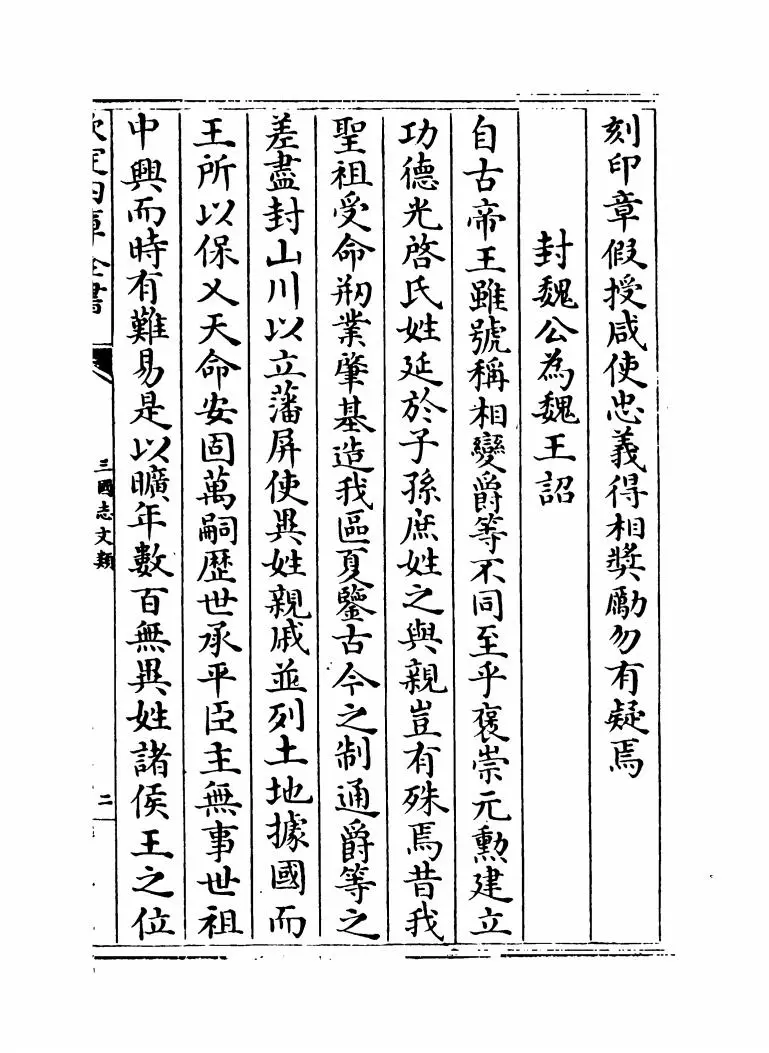 刻印章假授咸使忠義得相奬勵勿有疑焉
封魏公為魏王詔
自古帝王雖號稱相變爵等不同至乎褒崇元勲建立
功德光啓氏姓延於子孫庶姓之與親豈有殊焉昔我
聖祖受命刱業肇基造我區夏鑒古今之制通爵等之
差盡封山川以立藩屏使異姓親戚並列土地據國而
王所以保乂天命安固萬嗣歷世承平臣主無事世祖
中興而時有難易是以曠年數百無異姓諸侯王之位
欽定四庫全書
三國志文類
二